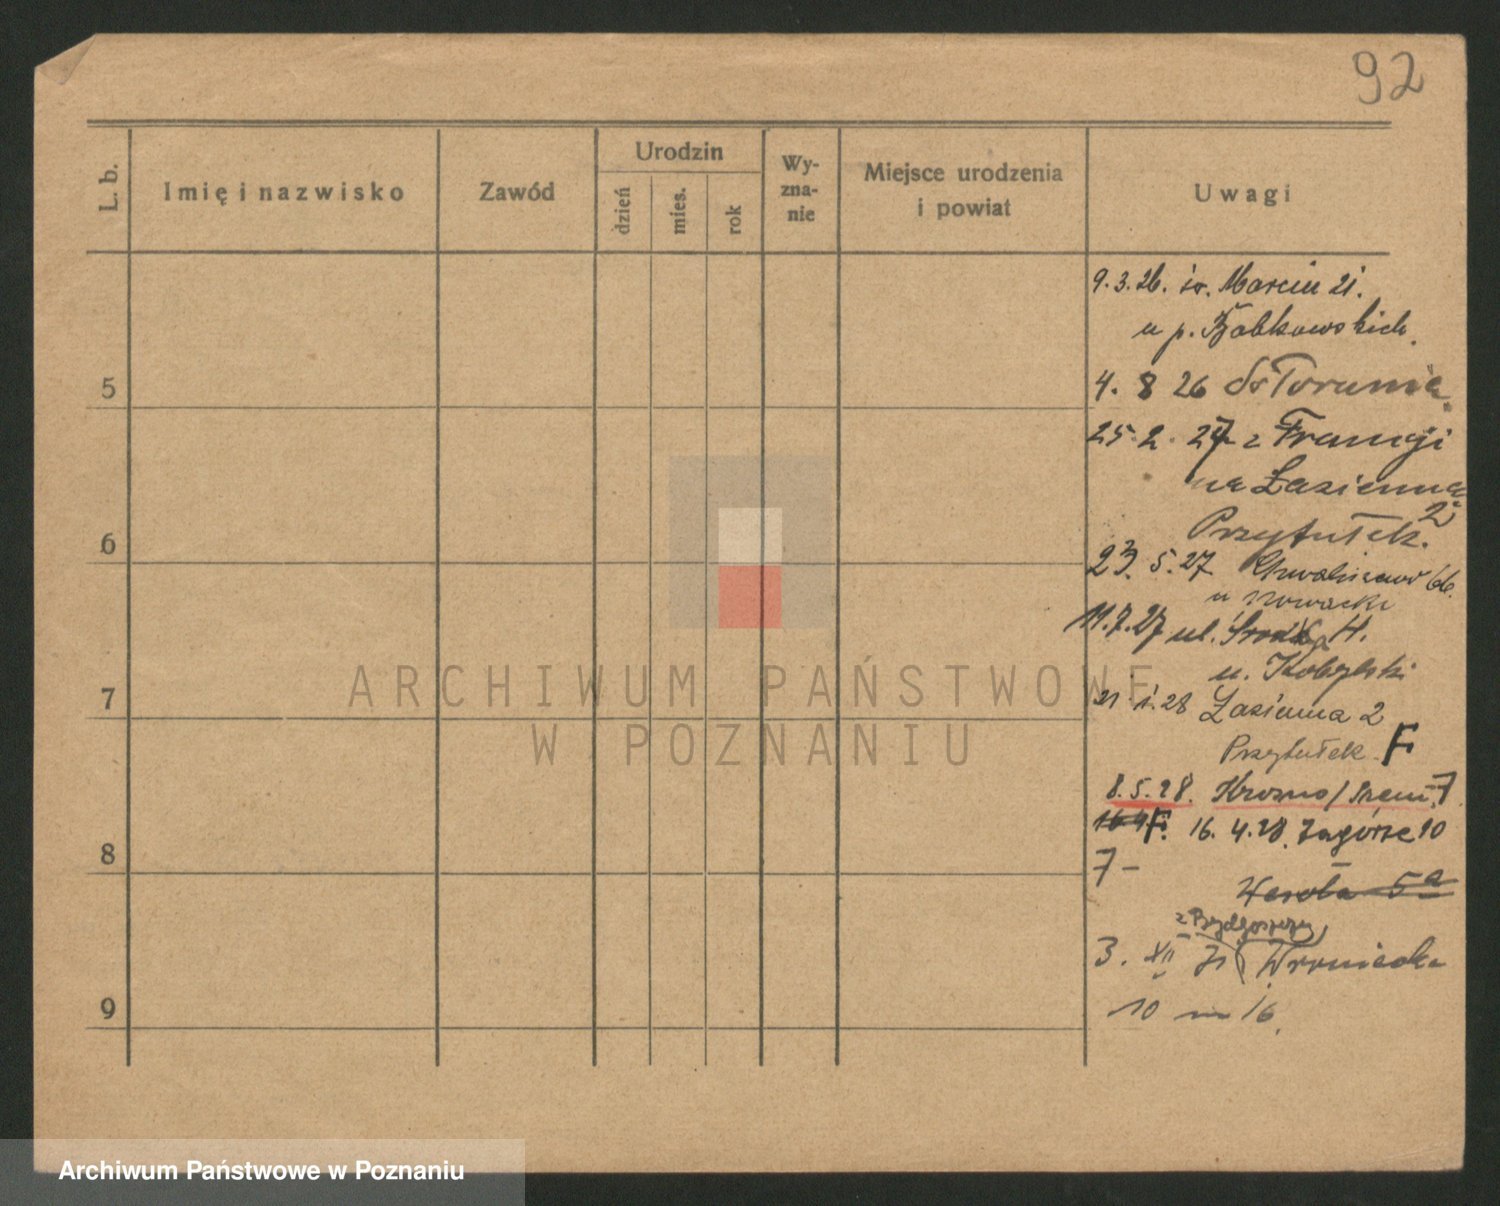 92
L. b.
Imię i nazwisko
Zawód
Urodzin
dzień
mies.
rok
Wy-
zna-
nie
Miejsce urodzenia
i powiat
Uwagi
9. 3. 26. św. Marcin 21.
u p. Bobkowskich.
4. 8 26 do Torunia.
25. 2. 27 z Francji
na Łazienną
2
Przytułek.
23. 5. 27
u Nowacki
11. 7. 27 ul. H.
u. Kobylski
21. 1. 28 Łazienna 2
Przytułek F
8. 5. 28.
16. 4 F. 16. 4. 28. Zagórze 10
7 –
Wesoła 5a
z Bydgoszczy
3. XII 31 Wroniecka
10 m 16.
5
6
7
8
9
ARCHIWUM PAŃSTWOWE
W POZNANIU
Archiwum Państwowe w Poznaniu